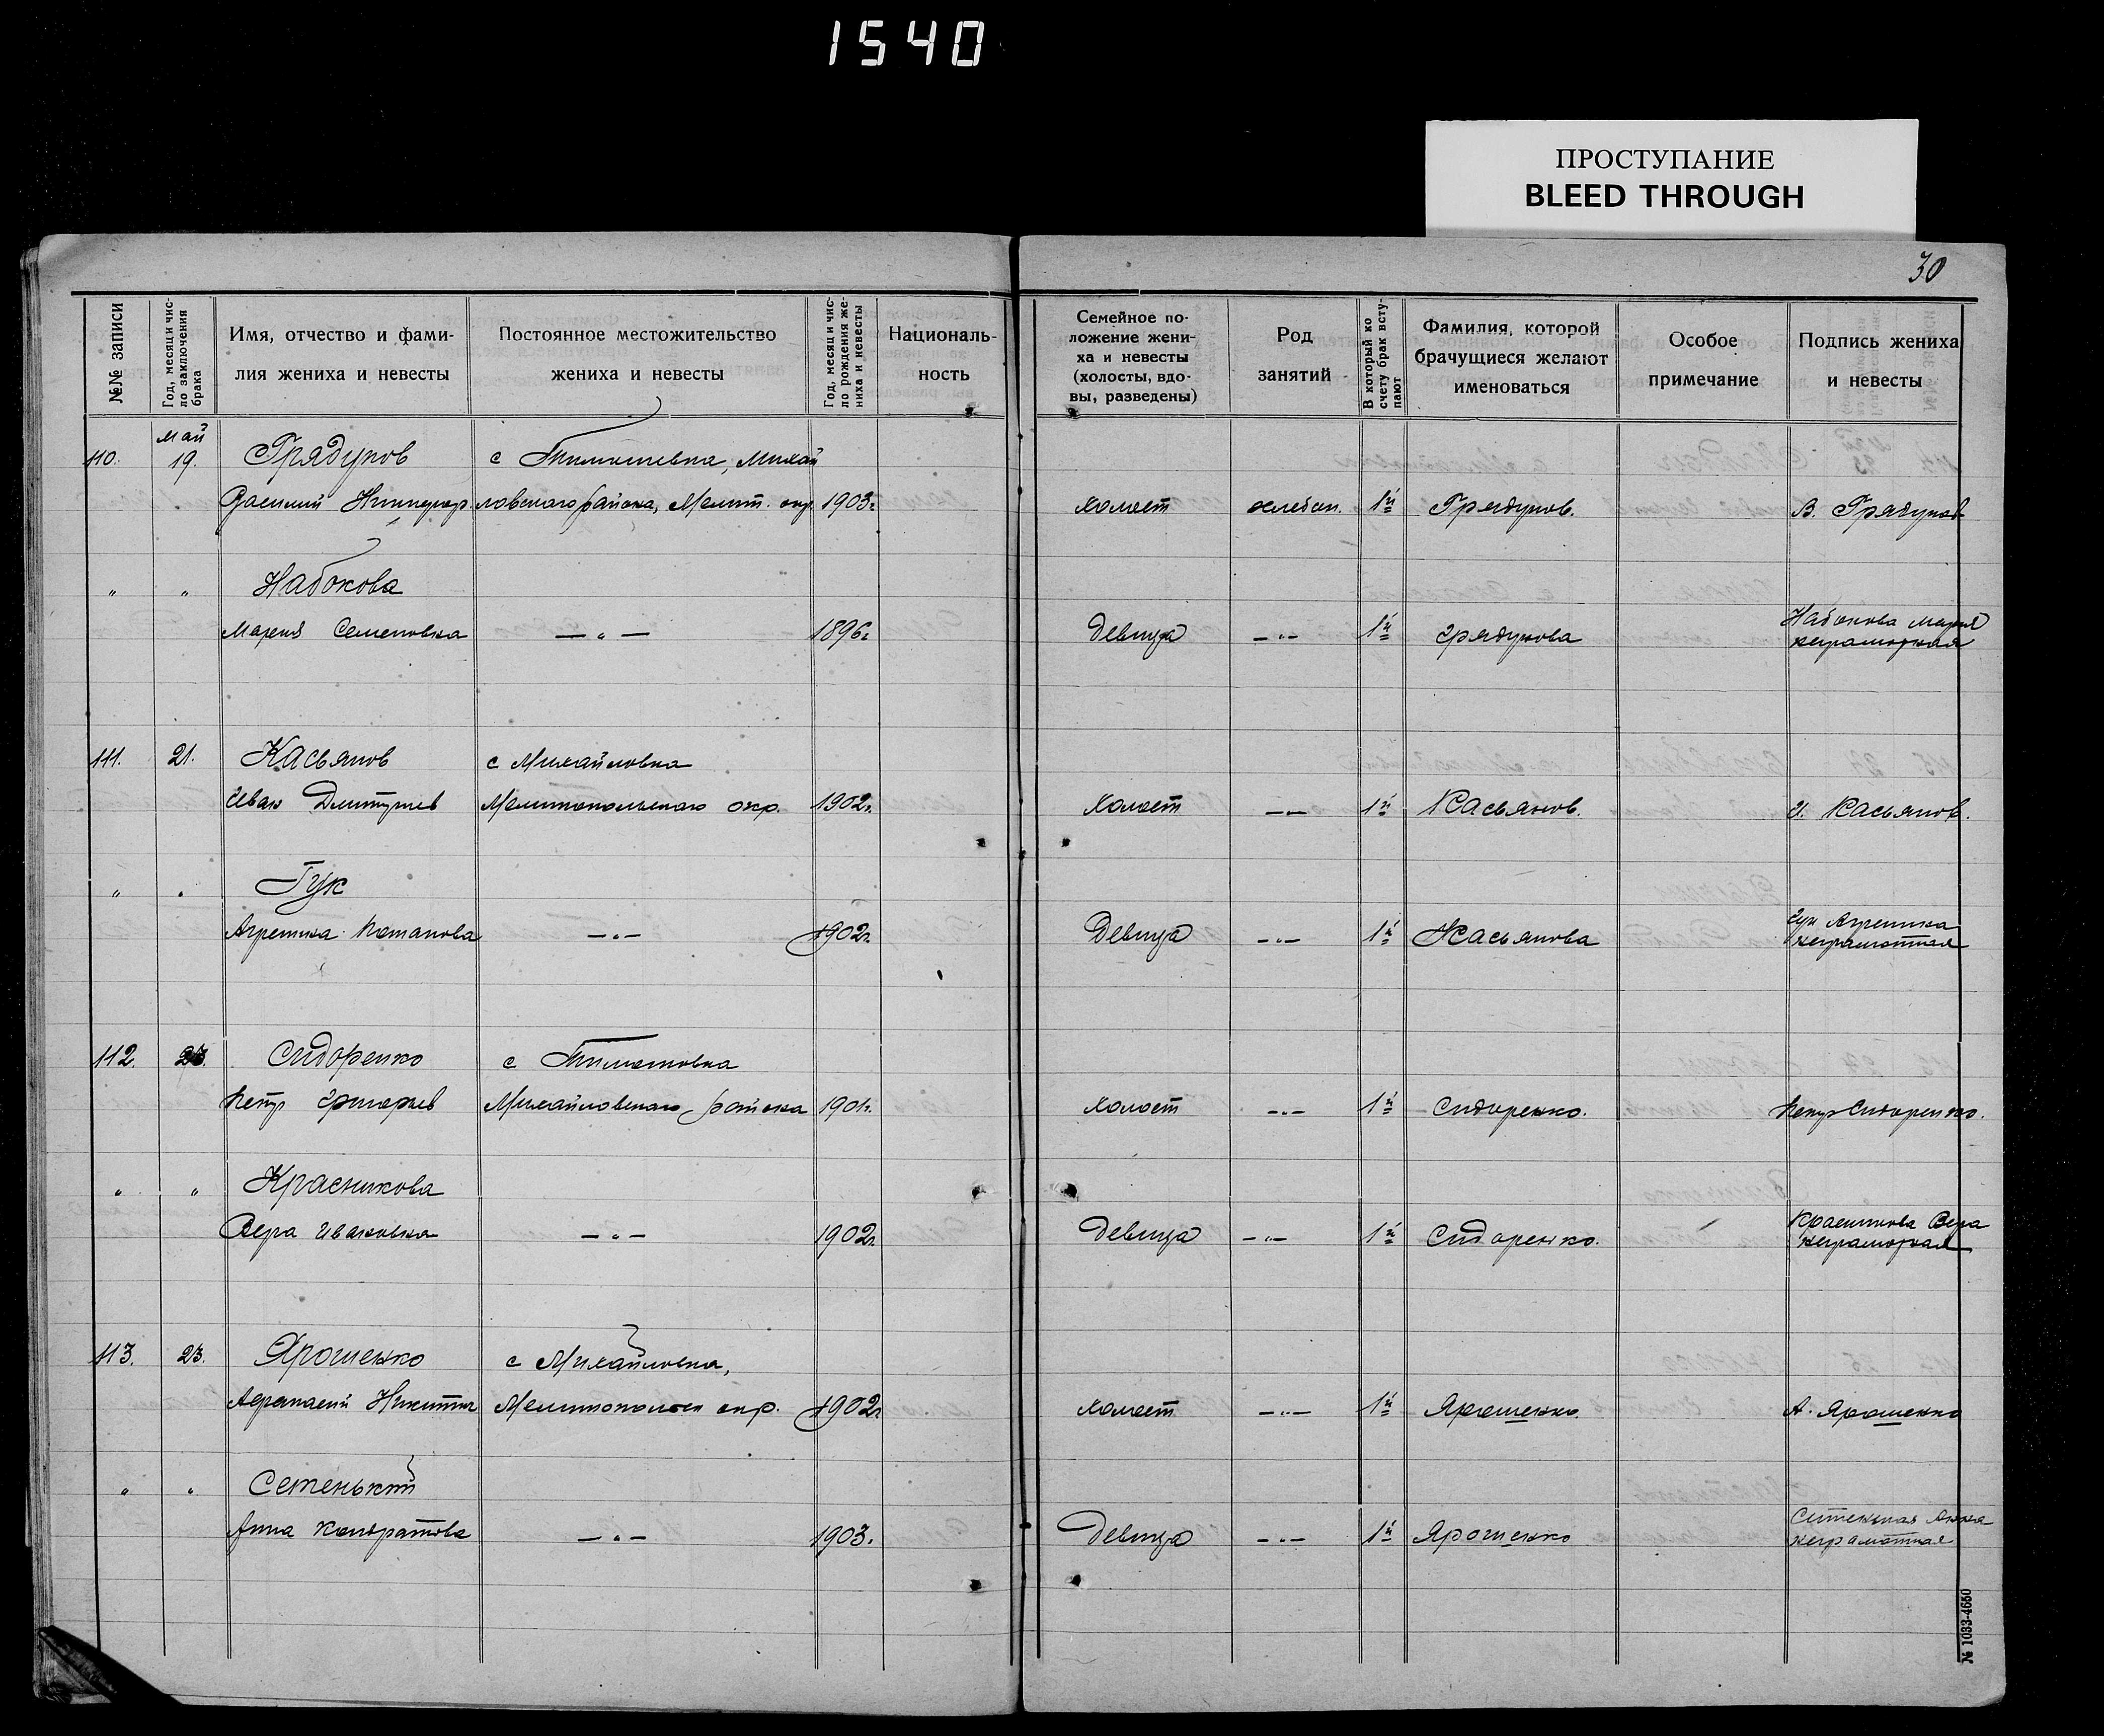 1540
ПРОСТУПАНИЕ
BLEED THROUGH
30
№№ записи
Год, месяц и чис-
ло заключения
брака
Имя, отчество и фами-
лия жениха и невесты
Постоянное местожительство
жениха и невесты
Год, месяц и чис-
ло рождения же-
ниха и невесты
Националь-
ность
Семейное по-
ложение жени-
ха и невесты
(холосты, вдо-
вы, разведены)
Род
занятий
В который ко
счету брак всту-
пают
Фамилия, которой
брачущиеся желают
именоваться
Особое
примечание
Подпись жениха
и невесты
май
110. 19. Грядунов с Тимошевка, Михай
Василий ловского района, Мелит. окр. 1903г. холост хлебоп. 1й Грядунов. В. Грядунов
" " Набокова
Мария Семеновна — " — 1896г. девица — " — 1й Грядунова Набокова Мария
неграмотная
111. 21. Касьянов с Михайловка
Иван Дмитриев Мелитопольского окр. 1902г. Холост — " — 1й Касьянов. И. Касьянов.
" " Гук
Агрепина Потапова — " — 1902г. Девица — " — 1й Касьянова Гук Агрепина
неграмотная
112. Сидоренко с Тимошовка
Петр Григорьев Михайловского района 1901г. холост — " — 1й Сидоренко. Петр Сидоренко.
" " Красникова
Вера Ивановна — " — 1902г. девица — " — 1й Сидоренко. Красникова Вера
неграмотная
113. 23. Ярошенко с Михайловка,
Афанасий Никитич Мелитопольск окр. 1902г. холост — " — 1й Ярошенко. А. Ярошенко
" "
Анна Кондратова — " — 1903г. Девица — " — 1й Ярошенко Анна
неграмотная
№ 1033-4650